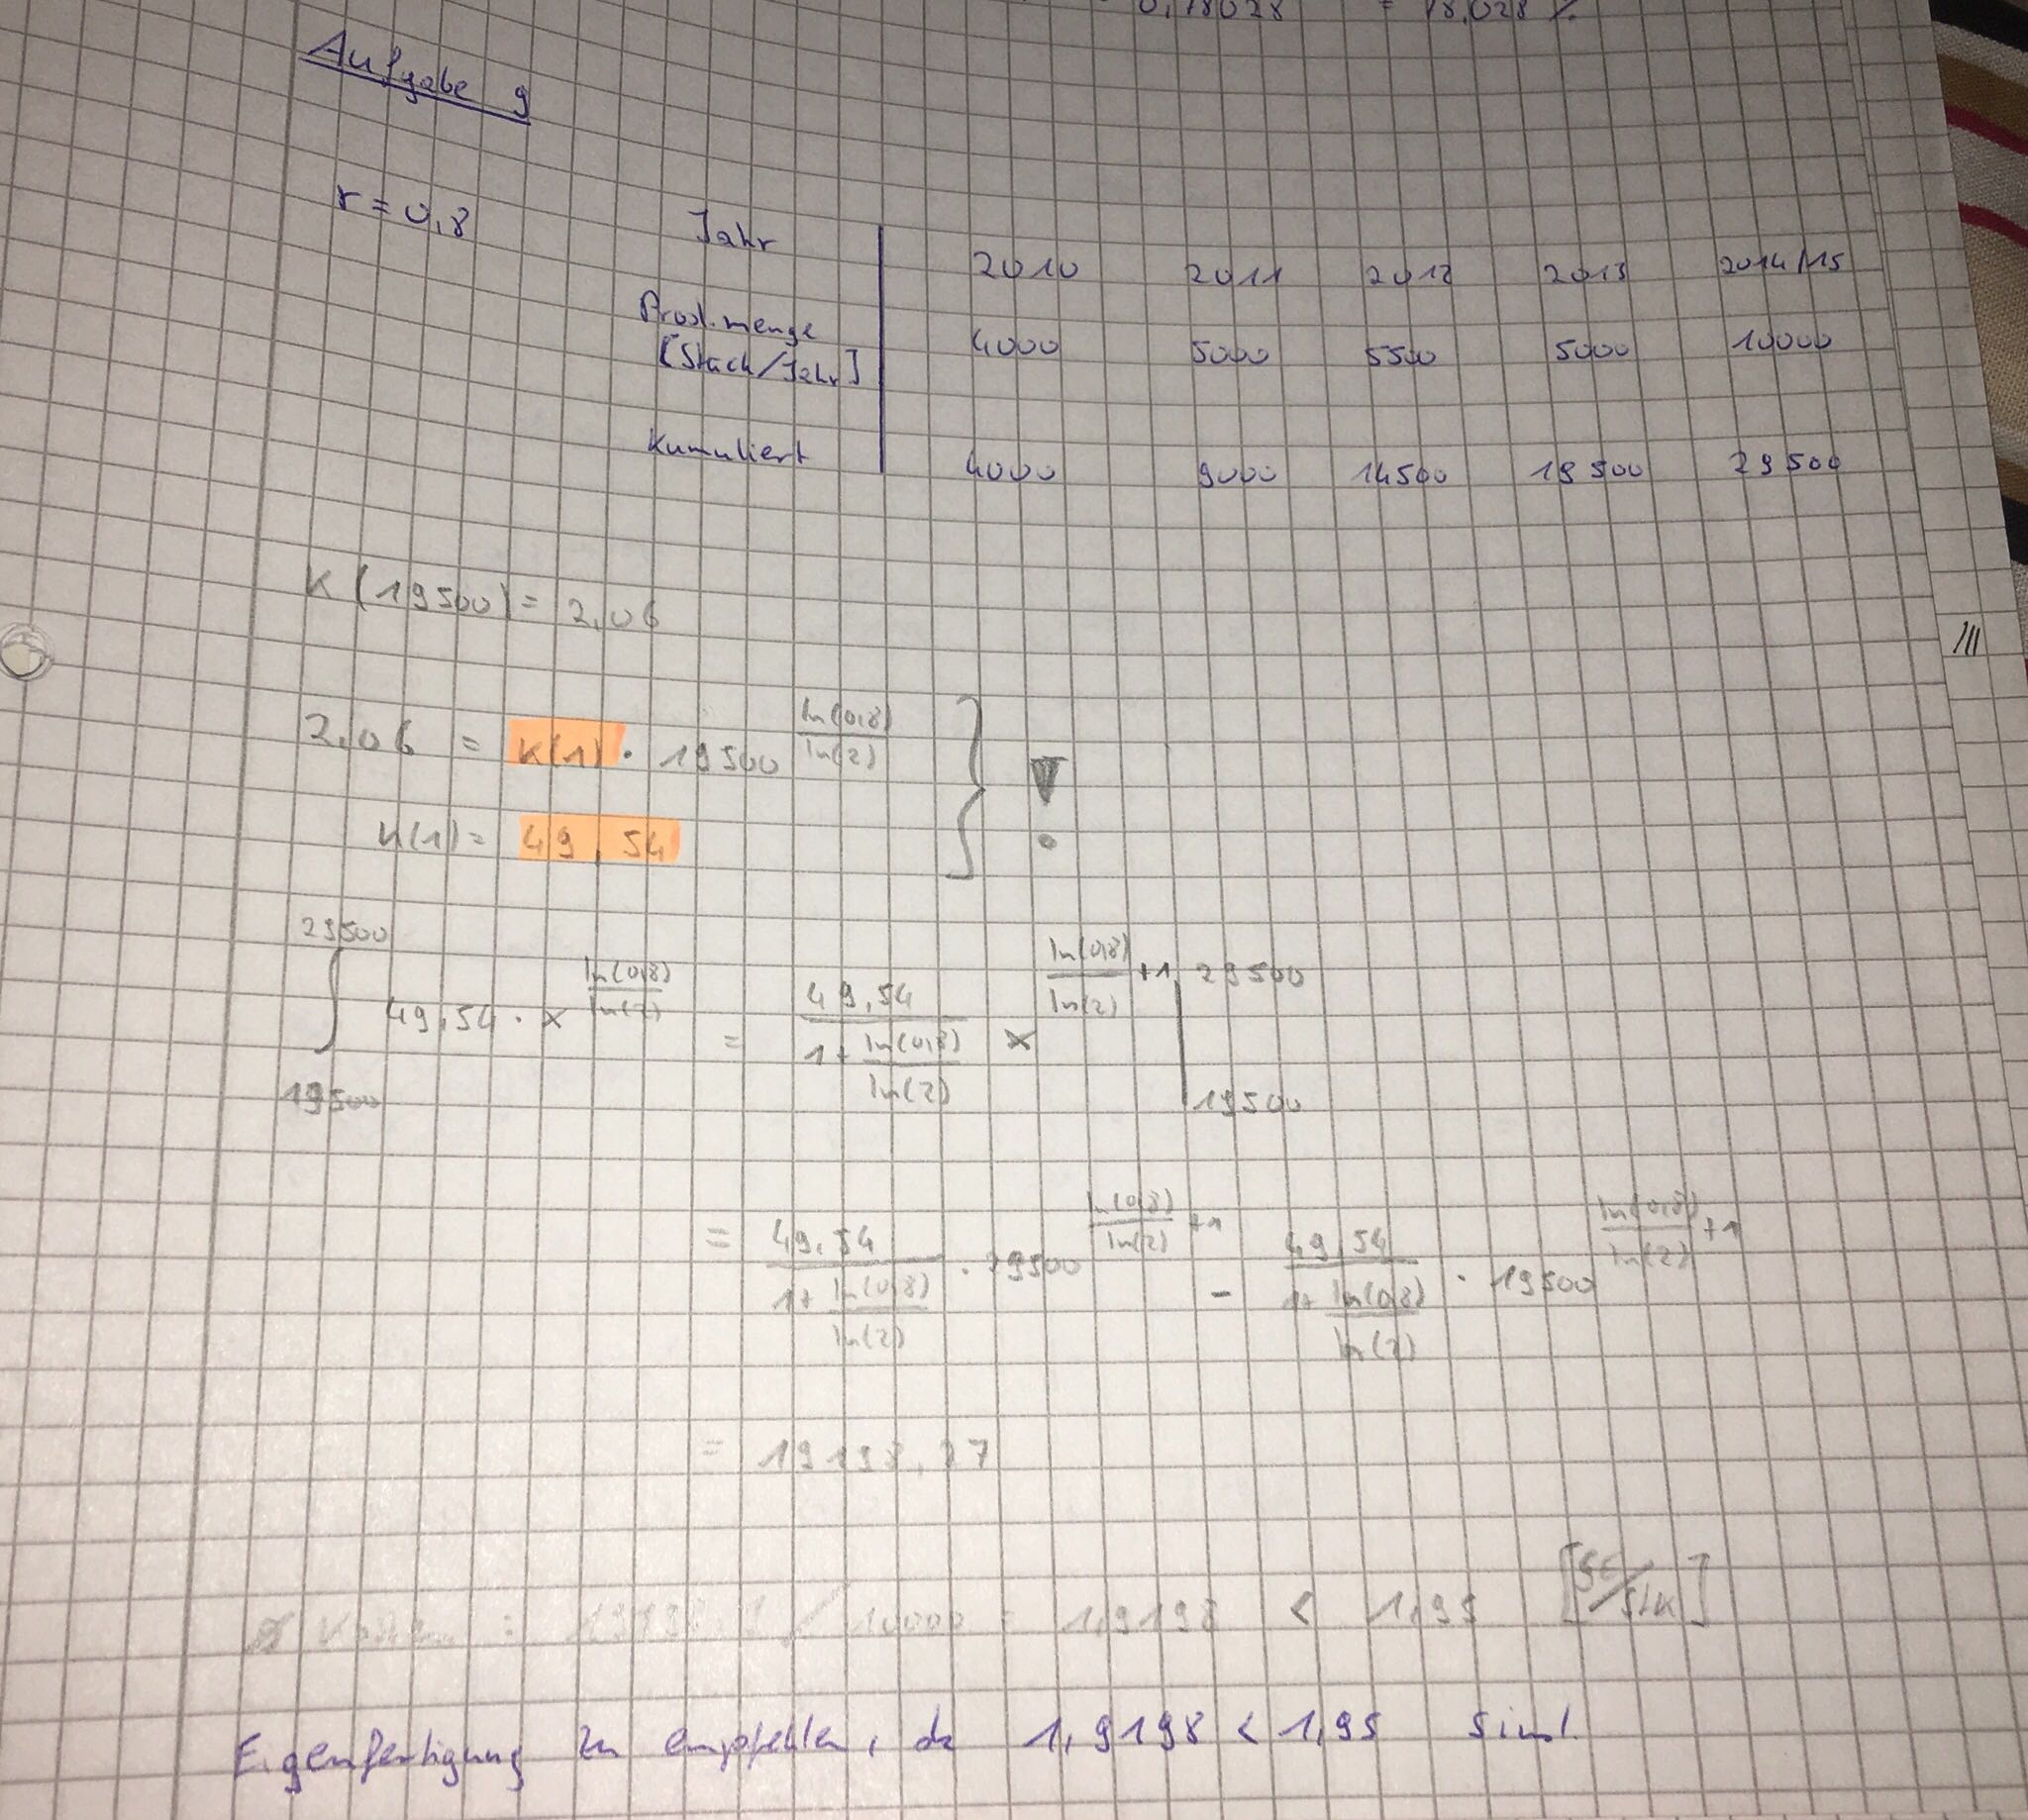 0,18028 = 18,028 %
Aufgabe 9
r = 0,8
Jahr 2010 2011 2012 2013 2014/15
Prod.menge
[Stück/Jahr] 4000 5000 5500 5000 10000
Kumuliert 4000 9000 14500 19500 29500
K(19500) = 2,06
111
2,06 = K(1) · 19500^(ln(0,8)/ln(2)) } !
K(1) = 49,54
∫_{19500}^{29500} 49,54 · x^(ln(0,8)/ln(2)) = 49,54/(1+ln(0,8)/ln(2)) x^(ln(0,8)/ln(2)+1) |_{19500}^{29500}
= 49,54/(1+ln(0,8)/ln(2)) · 29500^(ln(0,8)/ln(2)+1) - 49,54/(1+ln(0,8)/ln(2)) · 19500^(ln(0,8)/ln(2)+1)
= 19198,27
: / 10000 = 1,9198 < 1,95 [GE/Stk]
Eigenfertigung zu empfehlen, da 1,9198 < 1,95 sind.